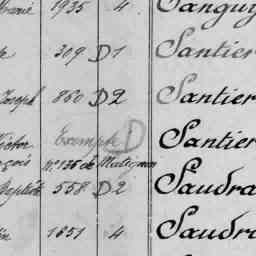 1935 4 Sanguy
309 D1 Santier
Joseph 860 D2 Santier
Victor Exempté D Santier
nº 136 de Matignon
Baptiste 558 D2 Saudra
1851 4 Saudra